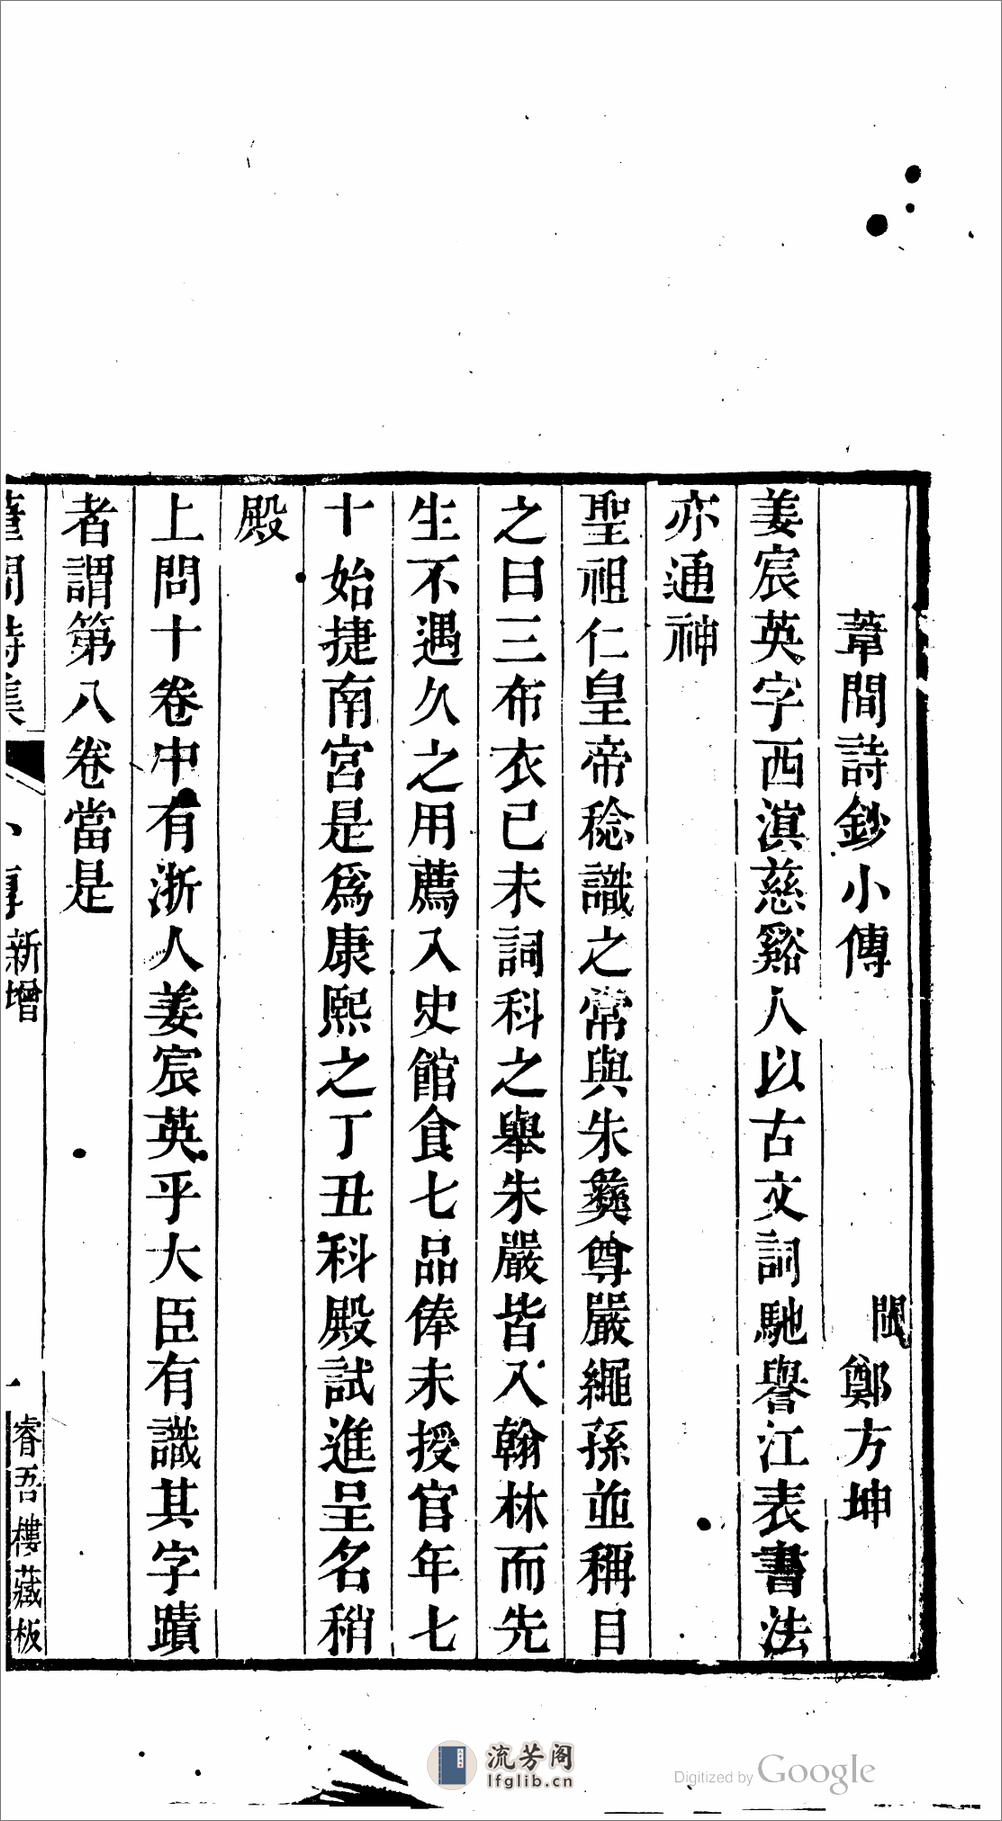 葦間詩鈔小傳
閩鄭方坤
姜宸英字西溟慈谿人以古文詞馳譽江表書法
亦通神
聖祖仁皇帝稔識之常與朱彝尊嚴繩孫並稱目
之曰三布衣已未詞科之舉朱嚴皆入翰林而先
生不遇久之用薦入史館食七品俸未授官年七
十始捷南宮是爲康熙之丁丑科殿試進呈名稍
殿
上問十卷中有浙人姜宸英乎大臣有識其字蹟
者謂第八卷當是
葦間詩集
小傳
新增
一
睿吾樓藏板
流芳阁
lfglib.cn
Digitized by Google